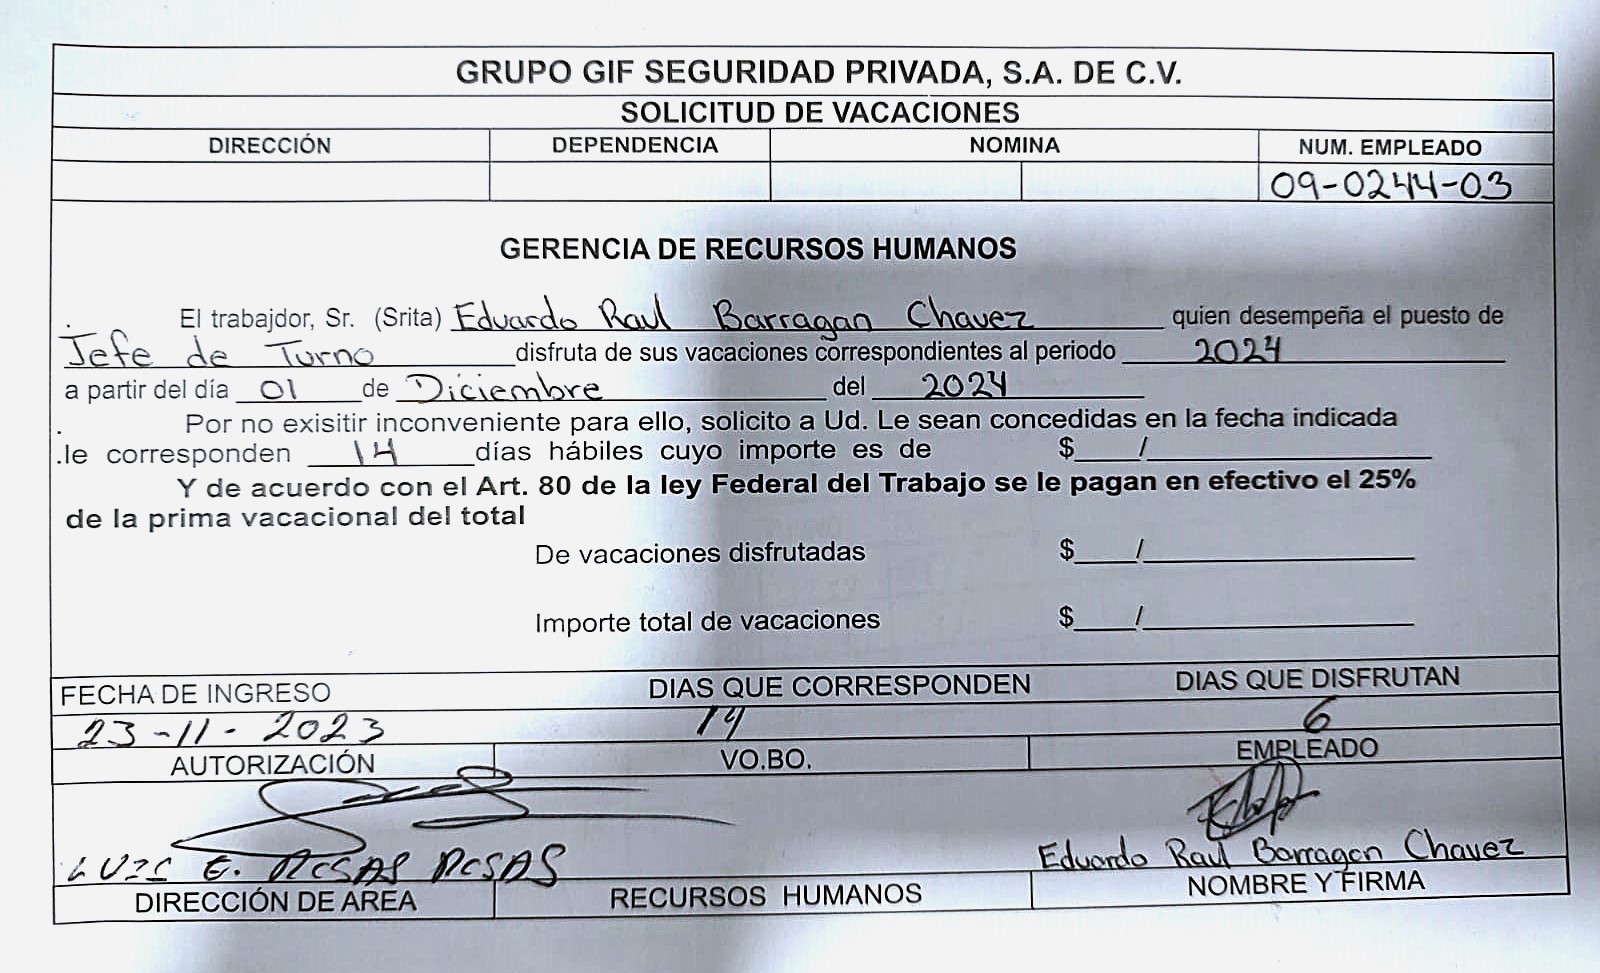 GRUPO GIF SEGURIDAD PRIVADA, S.A. DE C.V.
SOLICITUD DE VACACIONES
DIRECCIÓN DEPENDENCIA NOMINA NUM. EMPLEADO
09-0244-03
GERENCIA DE RECURSOS HUMANOS
El trabajdor, Sr. (Srita) Eduardo Raul Barragan Chavez quien desempeña el puesto de
Jefe de Turno disfruta de sus vacaciones correspondientes al periodo 2024
a partir del día 01 de Diciembre del 2024
Por no exisitir inconveniente para ello, solicito a Ud. Le sean concedidas en la fecha indicada
.le corresponden 14 días hábiles cuyo importe es de $ /
Y de acuerdo con el Art. 80 de la ley Federal del Trabajo se le pagan en efectivo el 25%
de la prima vacacional del total
De vacaciones disfrutadas $ /
Importe total de vacaciones $ /
FECHA DE INGRESO DIAS QUE CORRESPONDEN DIAS QUE DISFRUTAN
23-11-2023 14 6
AUTORIZACIÓN VO.BO. EMPLEADO
LUIS E. Eduardo Raul Barragan Chavez
DIRECCIÓN DE AREA RECURSOS HUMANOS NOMBRE Y FIRMA